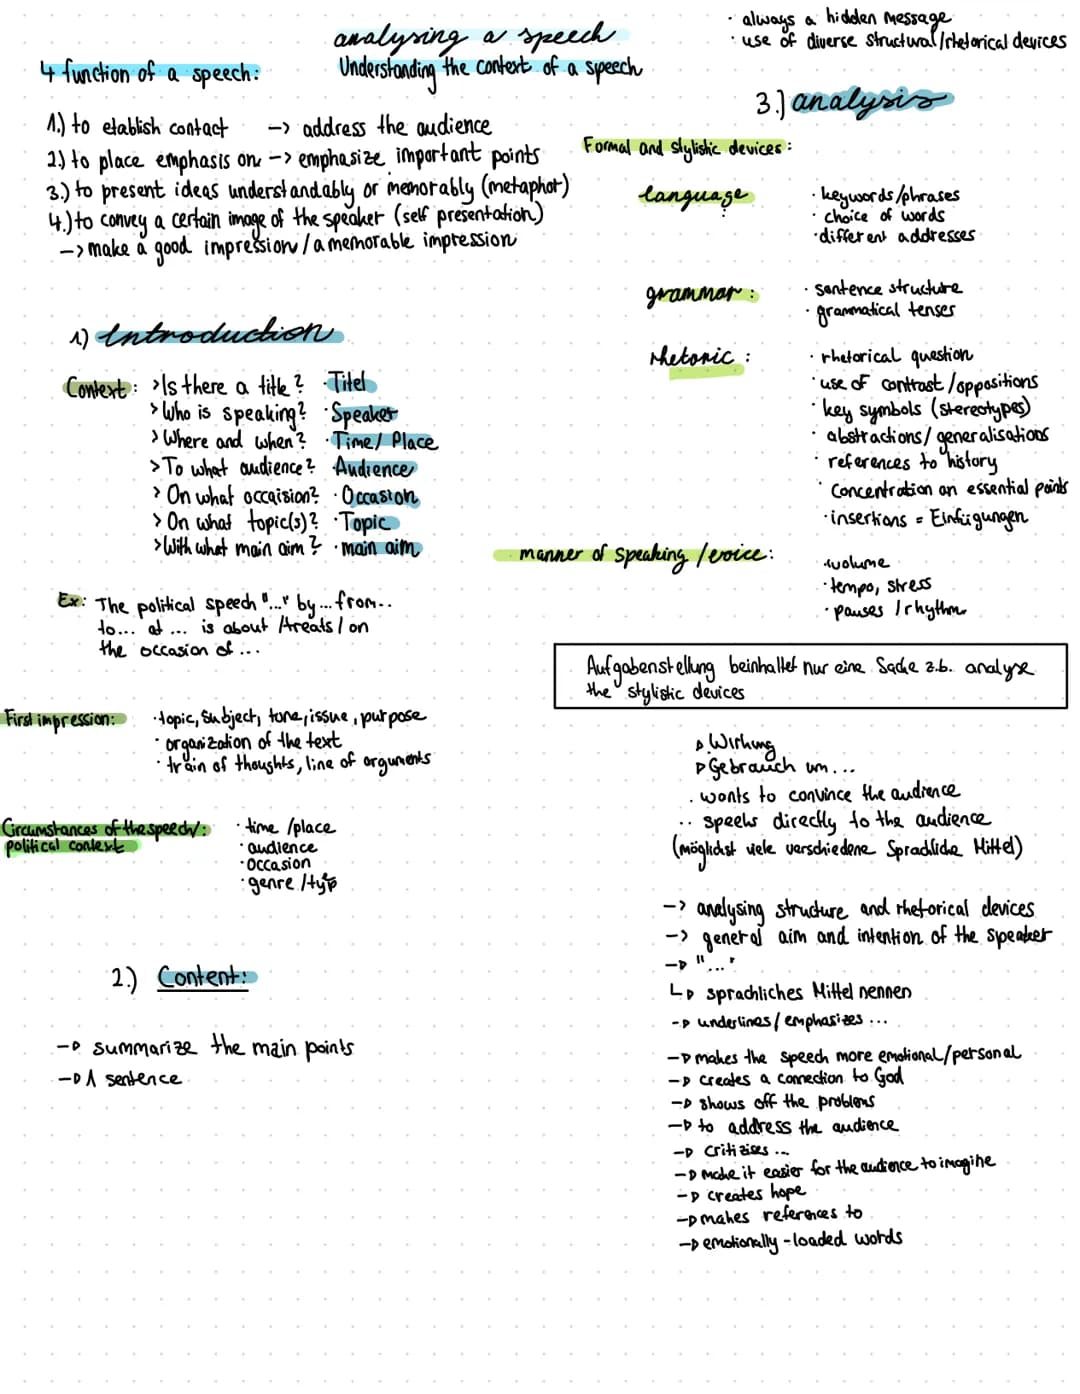 analysing a speech
Understanding the context of a speech
4 function of a speech:
1.) to etablish contact -> address the audience
2.) to place emphasis on -> emphasize important points
3.) to present ideas understandably or memorably (metaphor)
4.) to convey a certain image of the speaker (self presentation)
-> make a good impression / a memorable impression
1.) Introduction
Context: > Is there a title? · Titel
> Who is speaking? · Speaker
> Where and when? · Time/ Place
> To what audience? · Audience
> On what occaision? · Occasion
> On what topic(s)? · Topic
> With what main aim? · main aim
Ex: The political speech "..." by ... from..
to... at ... is about /treats / on
the occasion of ...
First impression: · topic, subject, tone, issue, purpose
· organization of the text
· train of thoughts, line of arguments
Circumstances of the speech/:
political context
· time /place
· audience
· occasion
· genre /typ
2.) Content:
-> summarize the main points
-> 1 sentence
· always a hidden message
· use of diverse structural/rhetorical devices
3.) analysis
Formal and stylistic devices:
language
· keywords/phrases
· choice of words
· different addresses
grammar:
· sentence structure
· grammatical tenses
rhetoric:
· rhetorical question
· use of contrast /oppositions
· key symbols (stereotypes)
· abstractions/ generalisations
· references to history
· concentration on essential points
· insertions = Einfügungen
manner of speaking /voice:
· volume
· tempo, stress
· pauses / rhythm
Aufgabenstellung beinhaltet nur eine Sache z.b. analyse
the stylistic devices
▷ Wirkung
▷ Gebrauch um...
. wants to convince the audience
.. speeks directly to the audience
(möglichst viele verschiedene Sprachliche Mittel)
-> analysing structure and rhetorical devices
-> general aim and intention of the speaker
-> "..."
↳ sprachliches Mittel nennen
-> underlines/ emphasizes ...
-> makes the speech more emotional/personal
-> creates a connection to God
-> shows off the problems
-> to address the audience
-> critizises ...
-> make it easier for the audience to imagine
-> creates hope
-> makes references to
-> emotionally-loaded words